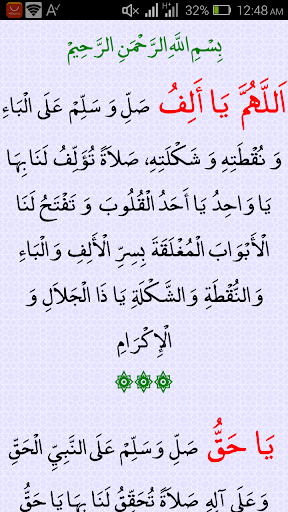 32% 12:48 AM
بِسْمِ اللَّهِ الرَّحْمَنِ الرَّحِيْمِ
اَللَّهُمَّ يَا أَلِفُ صَلِّ وَ سَلِّمْ عَلَى الْبَاءِ
وَ نُقْطَتِهِ وَ شَكْلَتِهِ، صَلاَةً تُؤَلِّفُ لَنَا بِهَا
يَا وَاحِدُ يَا أَحَدُ الْقُلُوبَ وَ تَفْتَحُ لَنَا
الْأَبْوَابَ الْمُغْلَقَةَ بِسِرِّ الْأَلِفِ وَالْبَاءِ
وَالنُّقْطَةِ وَالشَّكْلَةِ يَا ذَا الْجَلاَلِ وَ
الْإِكْرَامِ
يَا حَقُّ صَلِّ وَسَلِّمْ عَلَى النَّبِيِّ الْحَقِّ
وَعَلَى آلِهِ صَلاَةً تُحَقِّقُ لَنَا بِهَا يَا حَقُّ